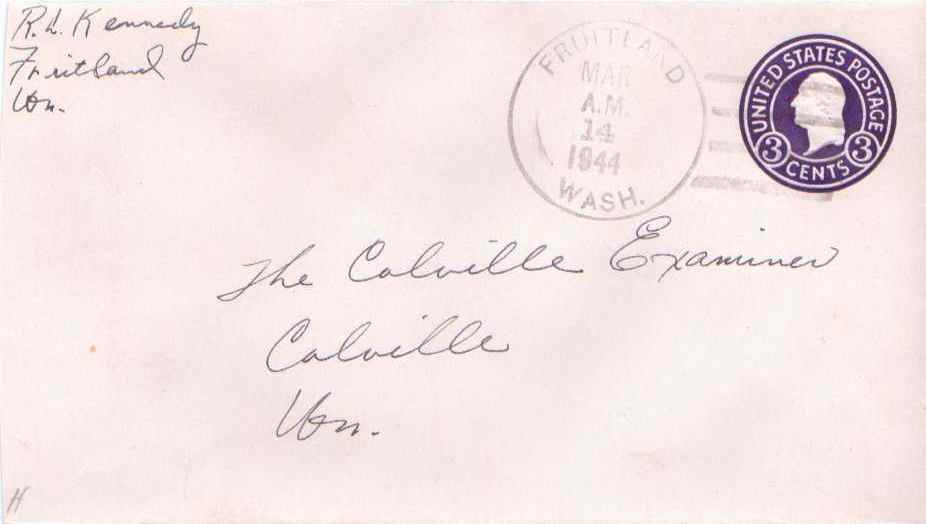 R.L. Kennedy
Fruitland
Wn.
FRUITLAND
MAR
A.M.
14
1944
WASH.
UNITED STATES POSTAGE
3 CENTS 3
The Colville Examiner
Colville
Wn.
H